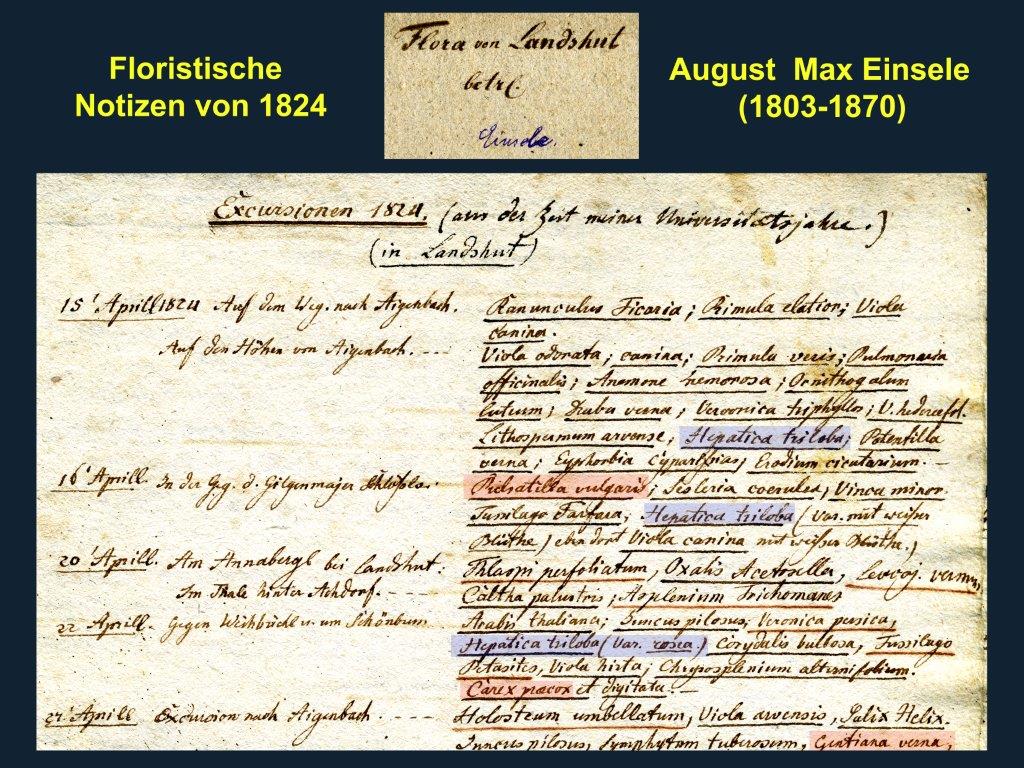 Floristische
Notizen von 1824
Flora von Landshut
betr.
Einsele.
August Max Einsele
(1803-1870)
Excursionen 1824. (aus der Zeit meiner Universitätsjahre.)
(in Landshut)
15t Aprill 1824 Auf dem Weg nach Aigenbach.
Ranunculus Ficaria; Primula elatior; Viola
canina.
Auf den Höhen von Aigenbach. ---
Viola odorata; canina; Primula veris; Pulmonaria
officinalis; Anemone nemorosa; Ornithogalum
luteum; Draba verna; Veronica triphyllos; V. hederefol.
Lithospermum arvense, Hepatica triloba; Potentilla
verna; Euphorbia Cyparissias, Erodium cicutarium.
16t Aprill. In der Geg. d. Gilgenmajer
Pulsatilla vulgaris; Sesleria coerulea, Vinca minor.
Tussilago Farfara, Hepatica triloba (var. mit weißer
Blüthe) eben dort Viola canina mit weißer Blüthe.)
20t Aprill. Am Annabergl bei Landshut:
Thlaspi perfoliatum, Oxalis Acetosella, Leucoj. vernum,
Im Thale hinter Achdorf. ---
Caltha palustris; Asplenium Trichomanes
22 Aprill. Gegen Weihbüchl u. um Schönbrun
Arabis thaliana; Juncus pilosus, Veronica persica,
Hepatica triloba (var. rosea.) Corydalis bulbosa, Tussilago
Petasites, Viola hirta; Chrysosplenium alternifolium.
Carex præcox et digitata.—
27t Aprill Excursion nach Aigenbach. ----
Holosteum umbellatum, Viola arvensis, Salix Helix.
Juncus pilosus, Symphytum tuberosum, Gentiana verna,